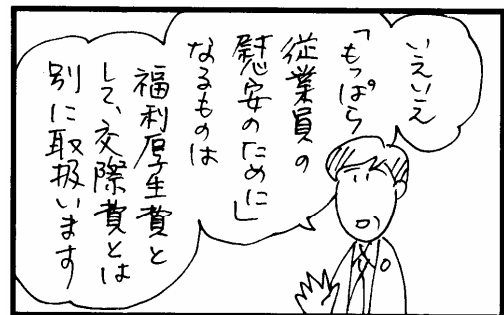 いえいえ
「もっぱら
従業員の
慰安のために」
なるものは
福利厚生費と
して、交際費とは
別に取扱います